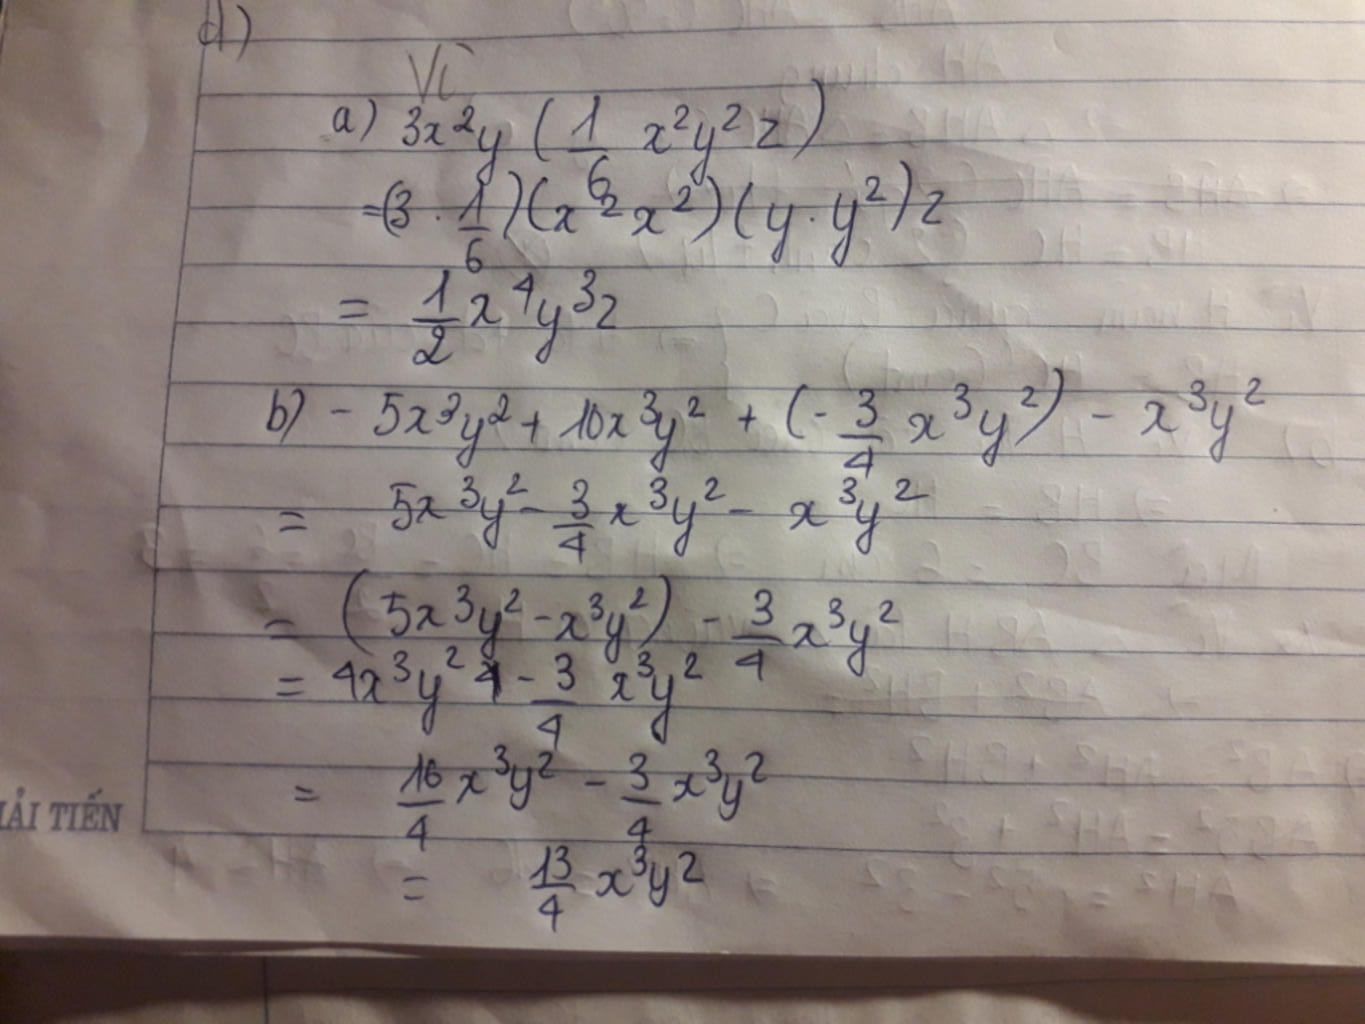 d)
Vì
a) 3x²y (1/6 x²y²z)
=(3 · 1/6)(x² x²)(y · y²)z
= 1/2 x⁴y³z
b) - 5x³y² + 10x³y² + (- 3/4 x³y²) - x³y²
= 5x³y² - 3/4 x³y² - x³y²
= (5x³y² - x³y²) - 3/4 x³y²
= 4x³y² - 3/4 x³y²
= 16/4 x³y² - 3/4 x³y²
HẢI TIẾN
= 13/4 x³y²